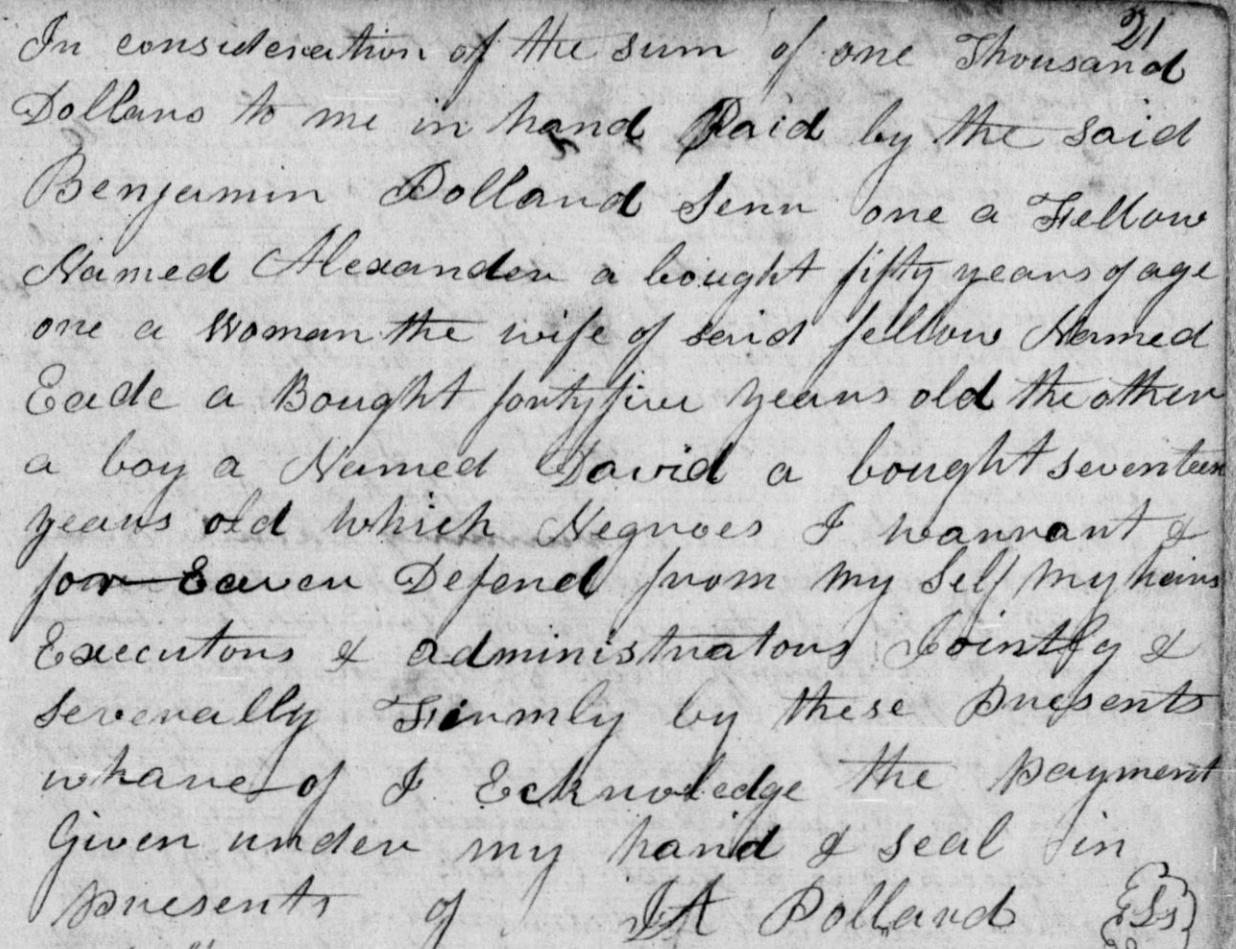 21
In consideration of the sum of one Thousand
Dollars to me in hand Paid by the said
Benjamin Pollard Senr one a Fellow
Named Alexander a bought fifty years of age
one a Woman the wife of said fellow Named
Eade a Bought forty five years old the other
a boy a Named David a bought seventeen
years old which Negroes I warrant &
for Eaver Defend from my Self my heirs
Executors & administrators Jointly &
severally Firmly by these presents
whare of I Ecknoledge the payment
Given under my hand & seal in
presents of Pollard